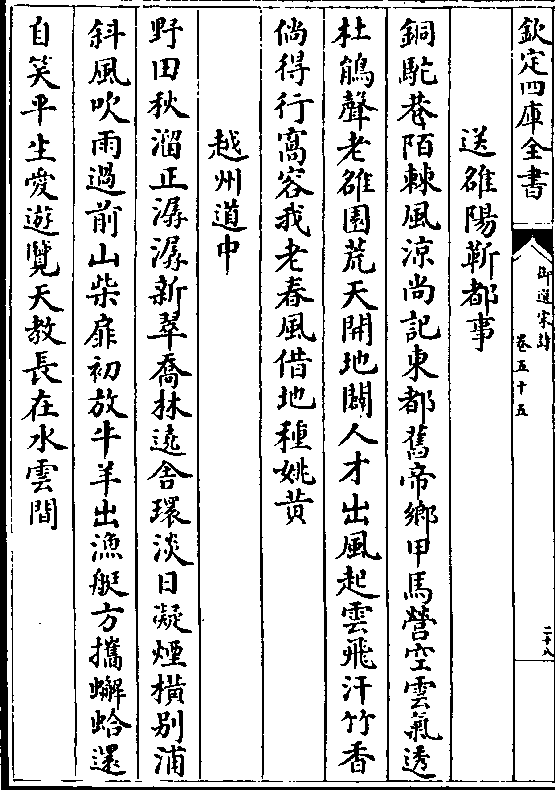 欽定四庫全書
御選宋詩
卷五十五
二十八
送雒陽靳都事
銅駝巷陌棘風涼尚記東都舊帝鄉甲馬營空雲氣透
杜鵑聲老雒園荒天開地闢人才出風起雲飛汗竹香
倘得行窩容我老春風借地種姚黄
越州道中
野田秋溜正潺潺新翠喬林逺舍環淡日凝煙橫别浦
斜風吹雨過前山柴扉初放牛羊出漁艇方攜蠏蛤還
自笑平生愛遊覽天教長在水雲間